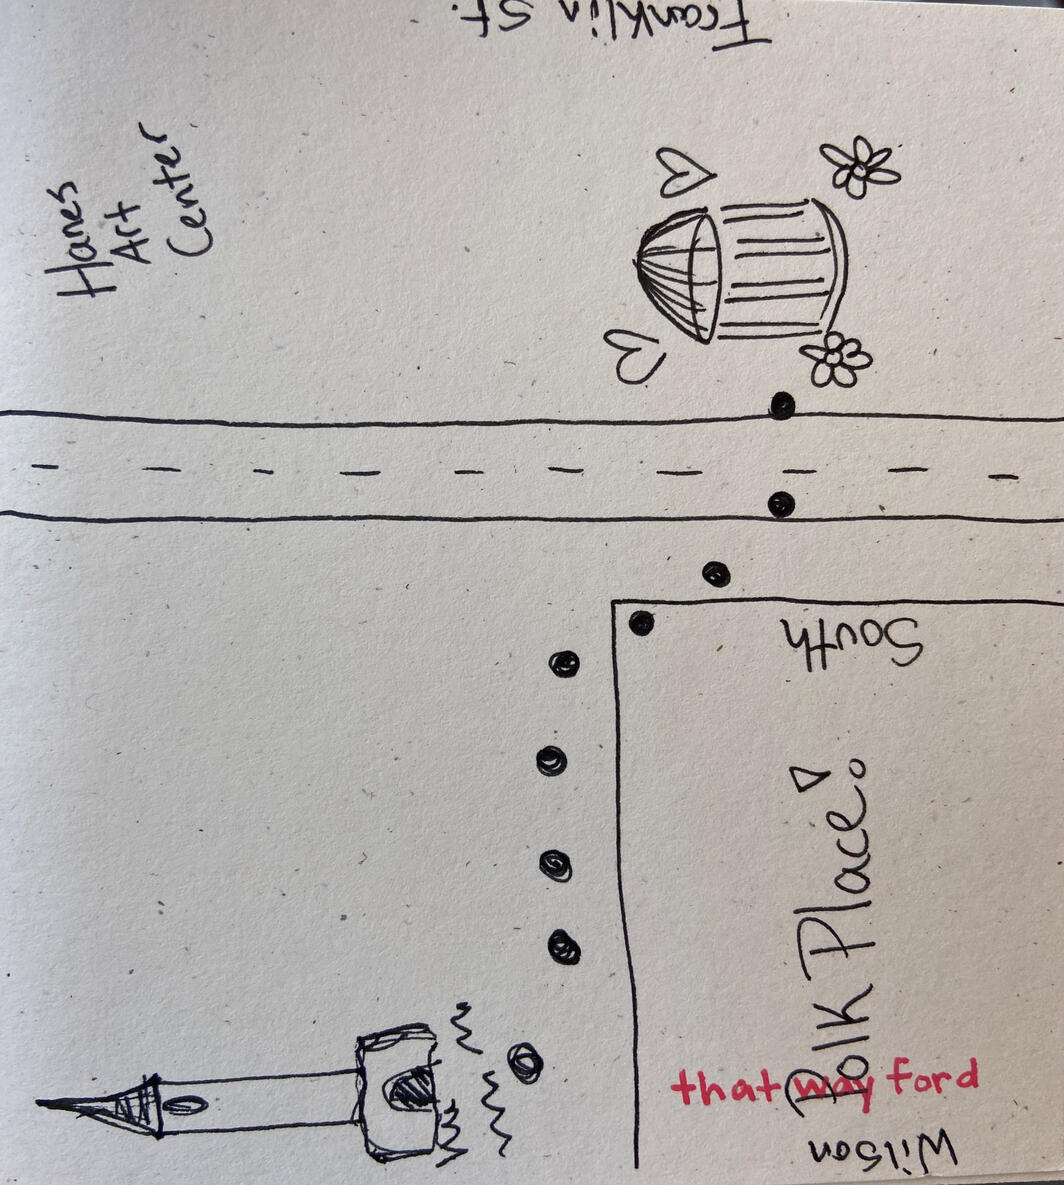 Franklin St.
Hanes
Art
Center
South
Polk Place!
that way ford
Wilson